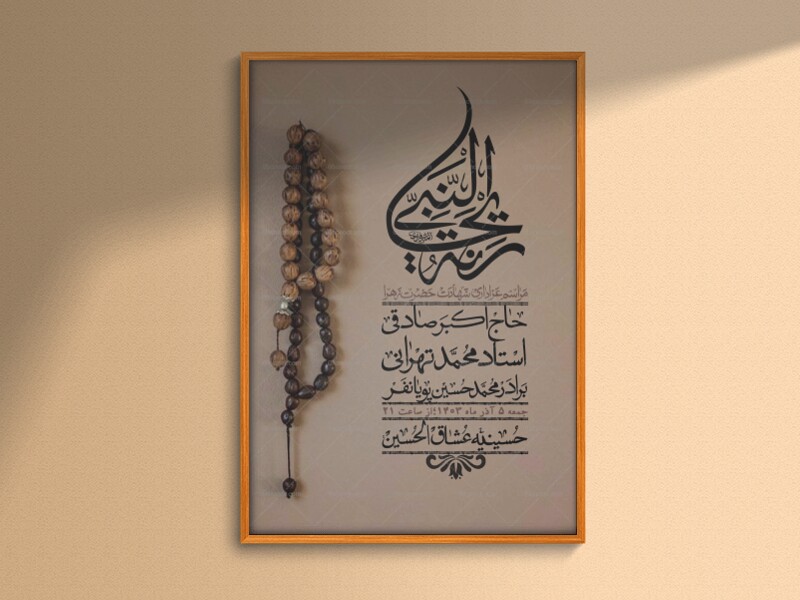 ریحانة النبی
مراسم عزاداری شهادت حضرت زهرا
حاج اکبر صادقی
استاد محمد تهرانی
برادر محمد حسین پویانفر
جمعه ۵ آذر ماه ۱۴۰۳؛از ساعت ۲۱
حسینیه عشاق الحسین